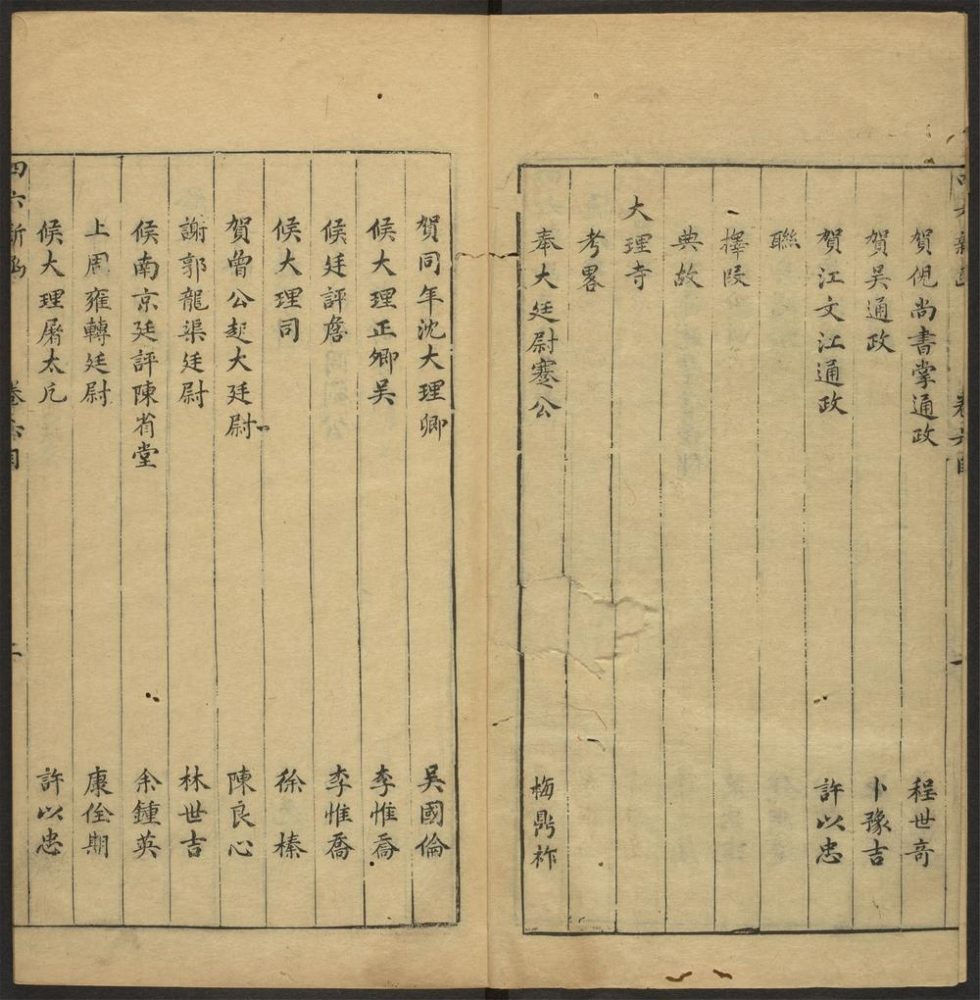 賀倪尚書掌通政 程世奇
賀吳通政 卜豫吉
賀江文江通政 許以忠
聯
擇段
典故
大理寺
考畧
奉大廷尉蹇公 梅鼎祚
賀同年沈大理卿 吳國倫
候大理正卿吳 李惟喬
候廷評詹 李惟喬
候大理司 徐榛
賀曾公起大廷尉 陳良心
謝郭龍渠廷尉 林世吉
候南京廷評陳省堂 余鍾英
上周雍轉廷尉 康佺期
候大理屠太凡 許以忠
四六新函 卷六目 二